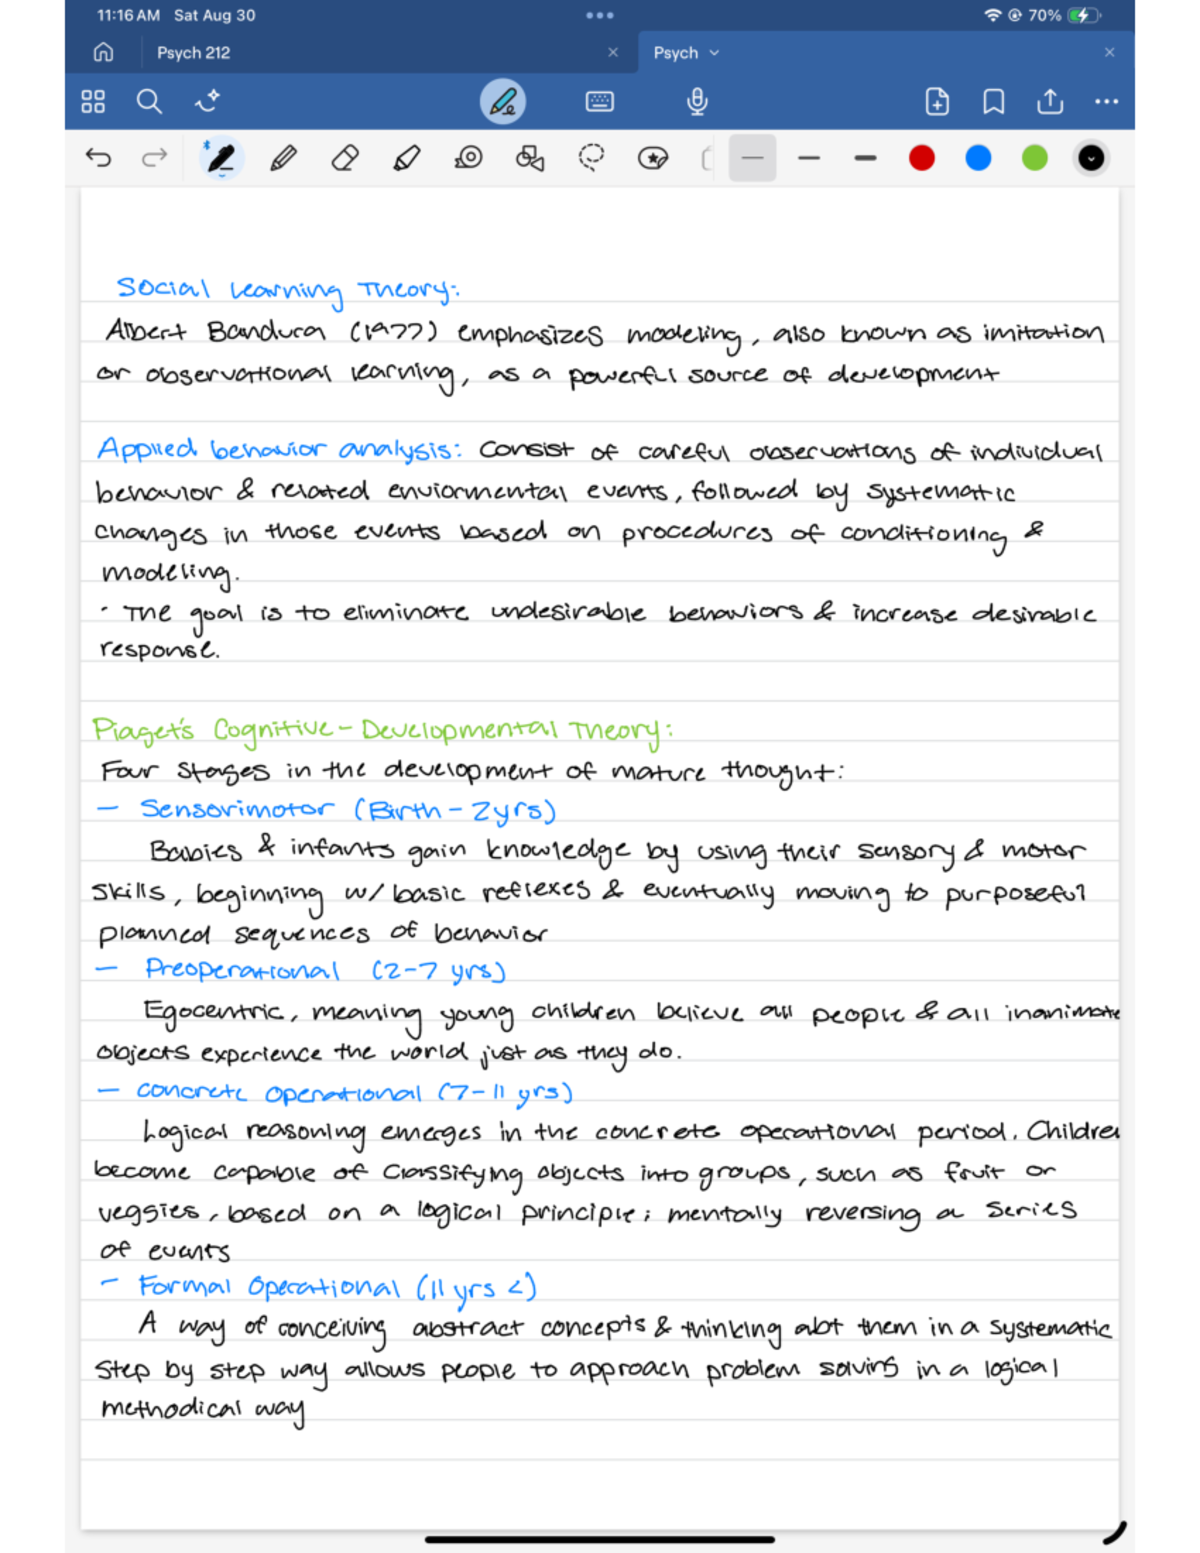 11:16 AM Sat Aug 30
70%
Psych 212
Psych
Social Learning Theory:
Albert Bandura (1977) emphasizes modeling, also known as imitation
or observational learning, as a powerful source of development
Applied behavior analysis: Consist of careful observations of individual
behavior & related enviormental events, followed by systematic
changes in those events based on procedures of conditioning &
modeling.
· The goal is to eliminate undesirable behaviors & increase desirable
response.
Piaget's Cognitive-Developmental Theory:
Four stages in the development of mature thought:
- Sensorimotor (Birth - 2yrs)
Babies & infants gain knowledge by using their sensory & motor
skills, beginning w/ basic reflexes & eventually moving to purposeful
planned sequences of behavior
- Preoperational (2-7 yrs)
Egocentric, meaning young children believe all people & all inanimate
objects experience the world just as they do.
- Concrete Operational (7-11 yrs)
Logical reasoning emerges in the concrete operational period. Children
become capable of classifying objects into groups, such as fruit or
veggies, based on a logical principle; mentally reversing a series
of events
- Formal Operational (11 yrs <)
A way of conceiving abstract concepts & thinking abt them in a systematic
step by step way allows people to approach problem solving in a logical
methodical way